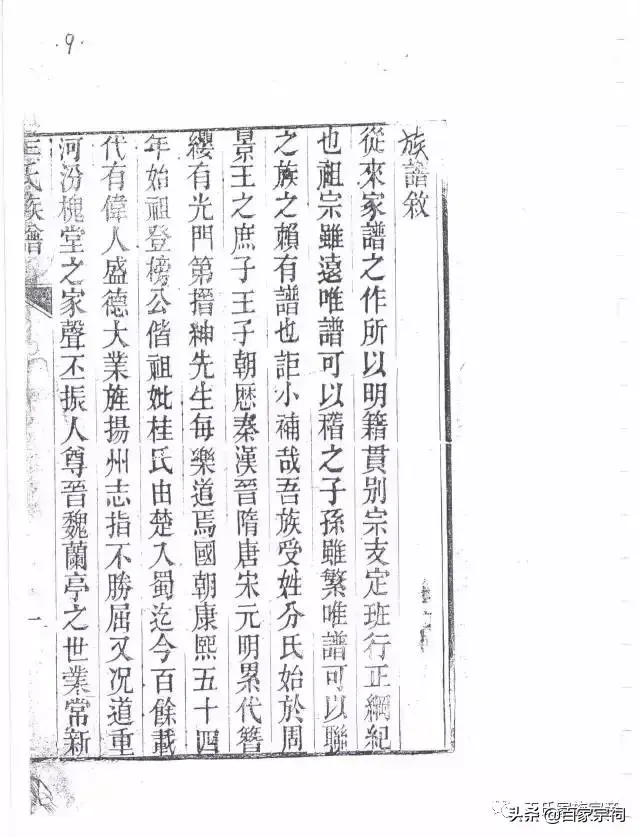 9
族譜敘
從來家譜之作所以明籍貫別宗支定班行正綱紀
也祖宗雖遠唯譜可以稽之子孫雖繁唯譜可以聯
之族之賴有譜也詎小補哉吾族受姓分氏始於周
景王之庶子王子朝歷秦漢晉隋唐宋元明累代簪
纓有光門第搢紳先生每樂道焉國朝康熙五十四
年始祖登榜公偕祖妣桂氏由楚入蜀迄今百餘載
代有偉人盛德大業旌揚州志指不勝屈又况道重
河汾槐堂之家聲丕振人尊晉魏蘭亭之世業常新
王氏族譜
一
王氏家族宗亲
头条 @百家宗祠